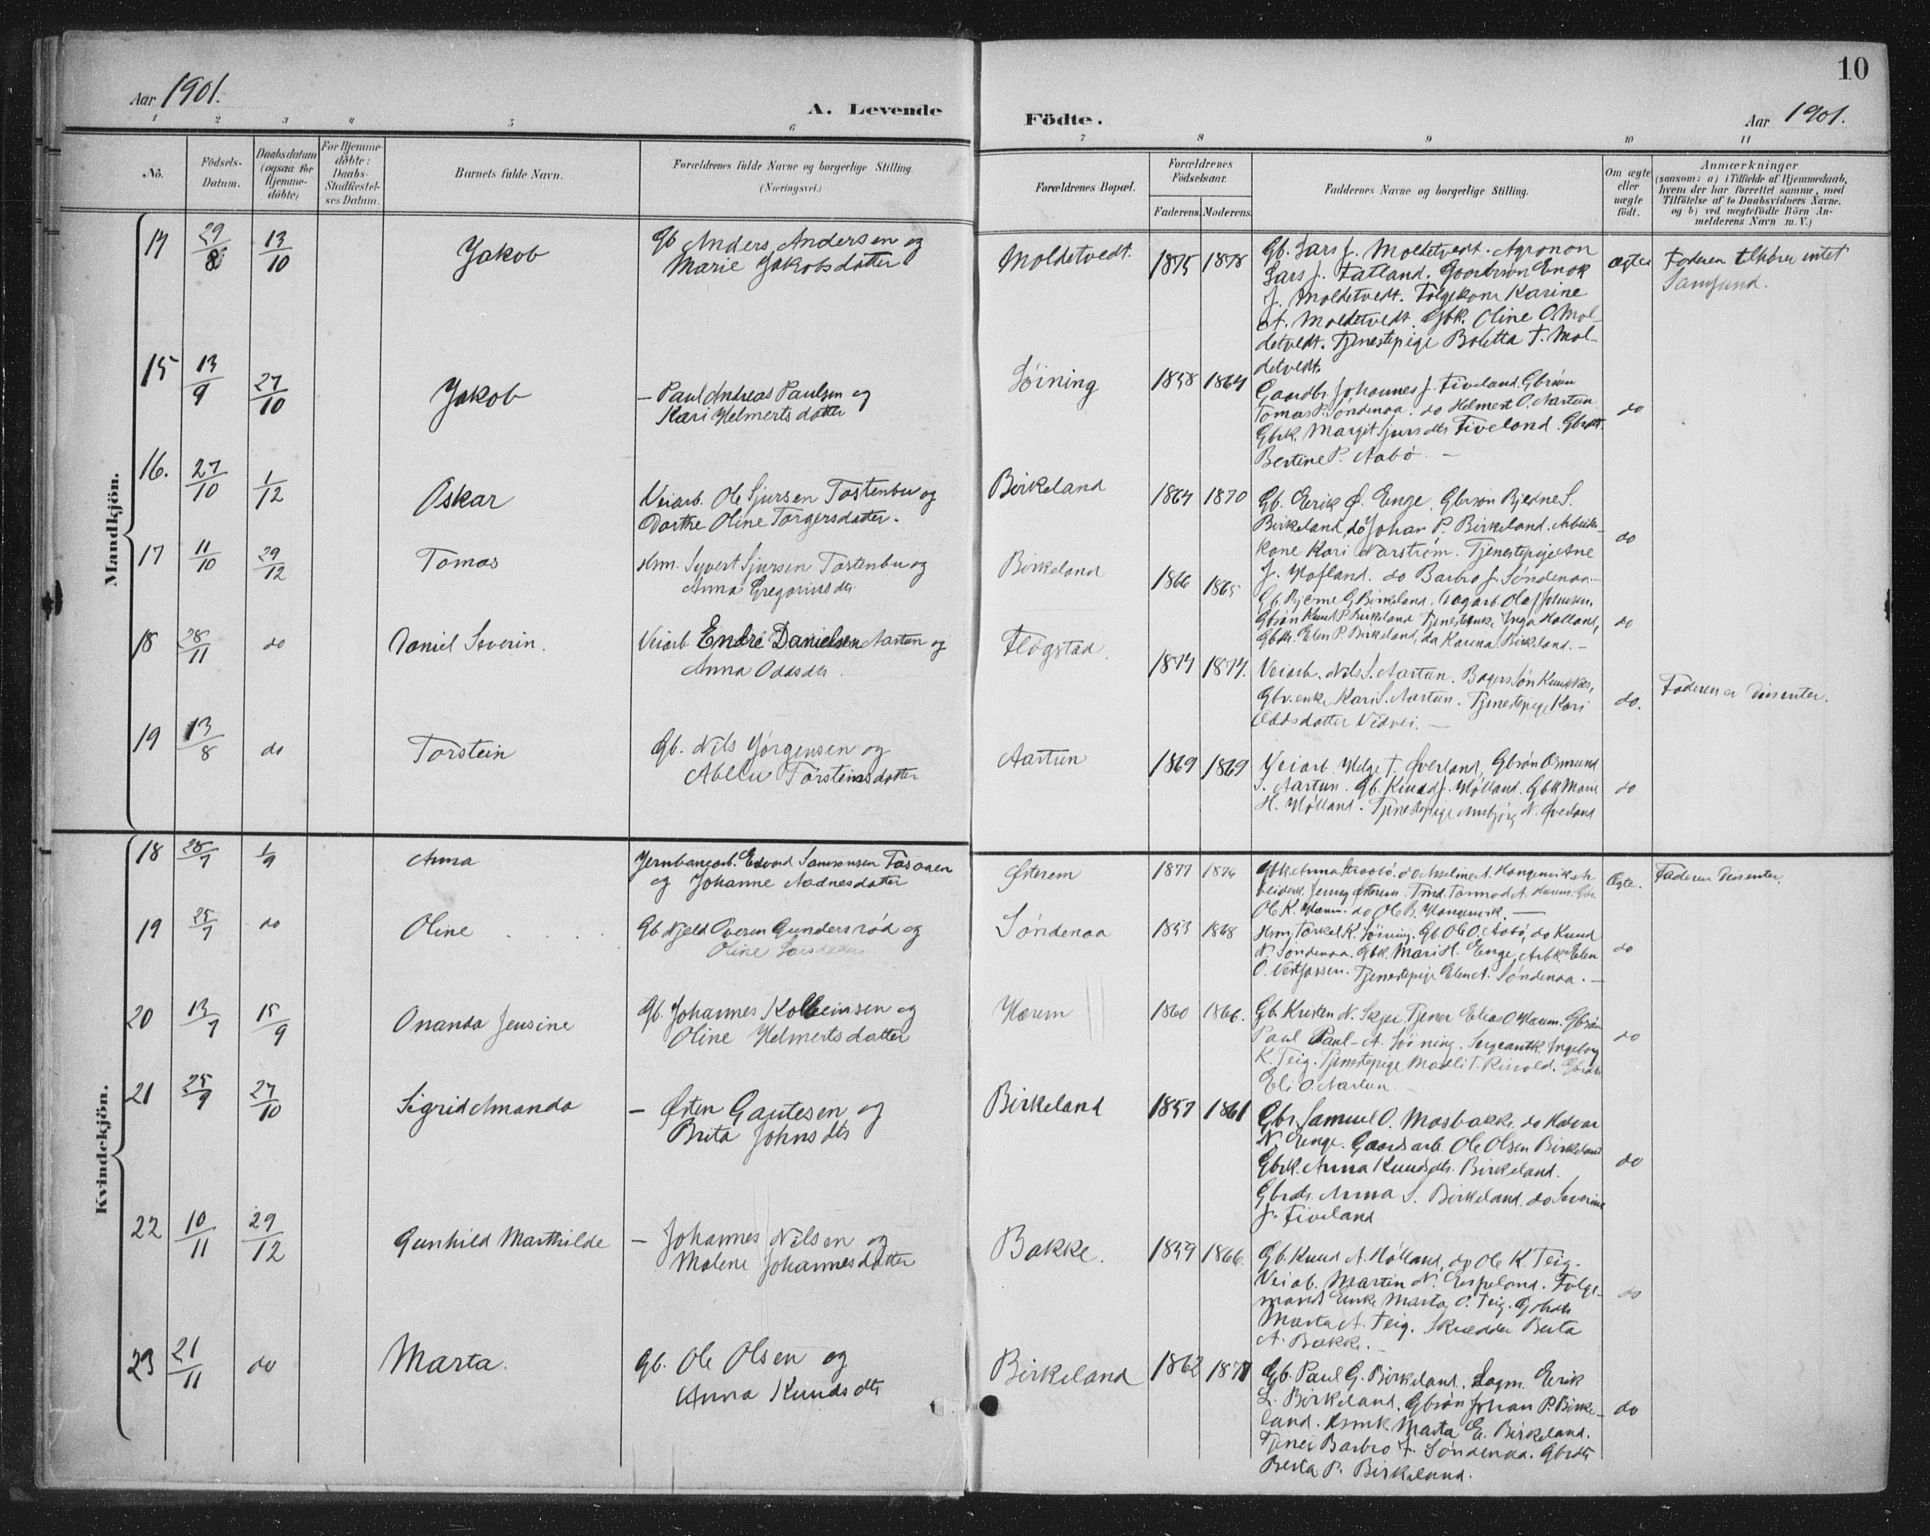 10
Aar 1901.
A. Levende
Födte.
Aar 1901.
1 2 3 4 5 6 7 8 9 10 11
No.
Födsels-
Datum.
Daabsdatum
(ogsaa for
Hjemme-
döbte)
For Hjemme-
döbte:
Daabs-
Stadfæstel-
ses Datum.
Barnets fulde Navn.
Forældrenes fulde Navne og borgerlige Stilling.
(Næringsvei.)
Forældrenes Bopæl.
Forældrenes
Födselsaar.
Faderens. Moderens.
Faddernes Navne og borgerlige Stilling.
Om ægte
eller
uægte
födt.
Anmærkninger
(saasom: a) i Tilfælde af Hjemmedaab,
hvem der har forrettet samme, med
Tilföielse af to Daabsvidners Navne.
og b) ved uægtefödte Börn An-
melderens Navn m. V.)
Mandkjön.
14 29/8 13/10 Jakob Gb Anders Andersen og
Marie Jakobsdatter
Moldetvedt. 1875 1878
Gb. Lars J. Moldetvedt. Agronon
Lars J. Fatland. Gaardbrsøn Enok
J. Moldetvedt. Folgekone Karine
A. Moldetvedt. Gbk. Oline O. Mol-
detvedt. Tjenestepige Boletta T. Mol-
detvedt.
ægte Faderen tilhører intet
Samfund.
15 13/9 27/10 Jakob — Paul Andreas Paulsen og
Kari Helmertsdatter
Söining 1858 1864
Gaardbr Johannes J. Fiveland. Gbrsøn
Tomas P. Søndenaa. do Helmert O. Aartun
Gbrk. Margit Sjursdtr Fiveland. Gbrdtr.
Bertine P. Aabö. —
do
16. 27/10 1/12 Oskar Veiarb. Ole Sjursen Tostenbu og
Dorthe Oline Torgersdatter.
Birkeland 1864 1870
Gb. Eerik Ø. Enge. Gbrsøn Bjedne S.
Birkeland, do Johan P. Birkeland. Arbeider-
kone Kari Narstrøm. Tjenestepige Ane
J. Hofland. do Barbro J. Søndenaa.—
do
17 11/10 29/12 Tomas Hsm. Syvert Sjursen Tostenbu og
Anna Gregoriusdtr
Birkeland 1866 1865
Gb. Bjerne G. Birkeland. Olaf Johnsen,
Gbrsøn Knud P. Birkeland Inga Hølland,
Gbdtr. Elen P. Birkeland, do Karina Birkeland. —
do
18 28/11 do Daniel Severin. Veiarb Endre Danielsen Aartun og
Anna Oddsdtr.
Flögstad. 1874 1874.
Veiarb. Nils S. Aartun. Bagersøn
Gbr.enke Kari S. Aartun. Tjenestepige Kari
Oddsdatter Vedvei. —
do. Faderen er Disenter.
19 13/8 do Torstein Gb. Nils Jørgensen og
Abelu Torsteinsdatter
Aartun 1869 1869
Veiarb. Helge T. Øverland, Gbrsøn Osmund
S. Aartun. Gb. Knud J. Hölland. Gbk Marie
H. Hölland. Tjenestepige Ambjørg N. Øverland
do
Kvindekjön.
18 28/7 1/9 Anna Jernbanearb. Edvard Samsonsen Fosaaen
og Johanne Aadnesdatter
Østerem 1877 1876
Gbk Anna
Jenny Østerem.
Ole K. Hærem. do Ole B. —
Ægte. Faderen Disenter.
19 25/7 do Oline Gb. Njeld Ovesen Gundersrød og
Oline Larsdatter
Søndenaa 1853 1868
Hsm. Torkel K. Söining. Gb. Ole O. Aabö, do Knud
N. Søndenaa. Gbk. Mari H. Enge, Arbk. Elen
O. Tjenestepige Elen A. Søndenaa. —
do
20 13/7 15/9 Ananda Jensine Gb. Johannes Kolbeinsen og
Oline Helmertsdatter
Hærem 1860 1866.
Gb. Kristen N. Skjei Tjener Elias O. Hærem. Gbrsøn
Paul Paul-A. Söining. Sergeantk. Ingeborg
K. Teig. Tjenestepige Madli T. Gbrdtr
Eli O. Aartun.
do
21 25/9 27/10 Sigrid Amanda — Østen Gautesen og
Brita Johnsdtr
Birkeland 1857 1861
Gbr. Samuel O. Mosbakke, do Halvar
N. Enge. Gaardsarb. Ole Olsen Birkeland
Gbrk. Anna Knudsdtr. Birkeland.
Gbrdtr. Anna S. Birkeland. do Severine
J. Fiveland
do
22 10/11 29/12 Gunhild Marthilde — Johannes Nilsen og
Malene Johannesdatter
Bakke. 1859 1866.
Gb. Knud A. Hölland, do Ole K. Teig.
Veiab. Martin N. Espeland. Folge-
mands Enke Marta O. Teig. Gbrdtr
Marta A. Teig. Skrædder Berta
A. Bakke. —
do
23 21/11 do Marta. Gb. Ole Olsen og
Anna Knudsdtr
Birkeland 1862 1871
Gb. Paul G. Birkeland. Lagm. Eerik
L. Birkeland. Gbrsøn Johan P. Birke-
land. Hsmk. Marta E. Birkeland.
Tjener Barbro J. Søndenaa. Gbrdtr
Berta P. Birkeland.
do